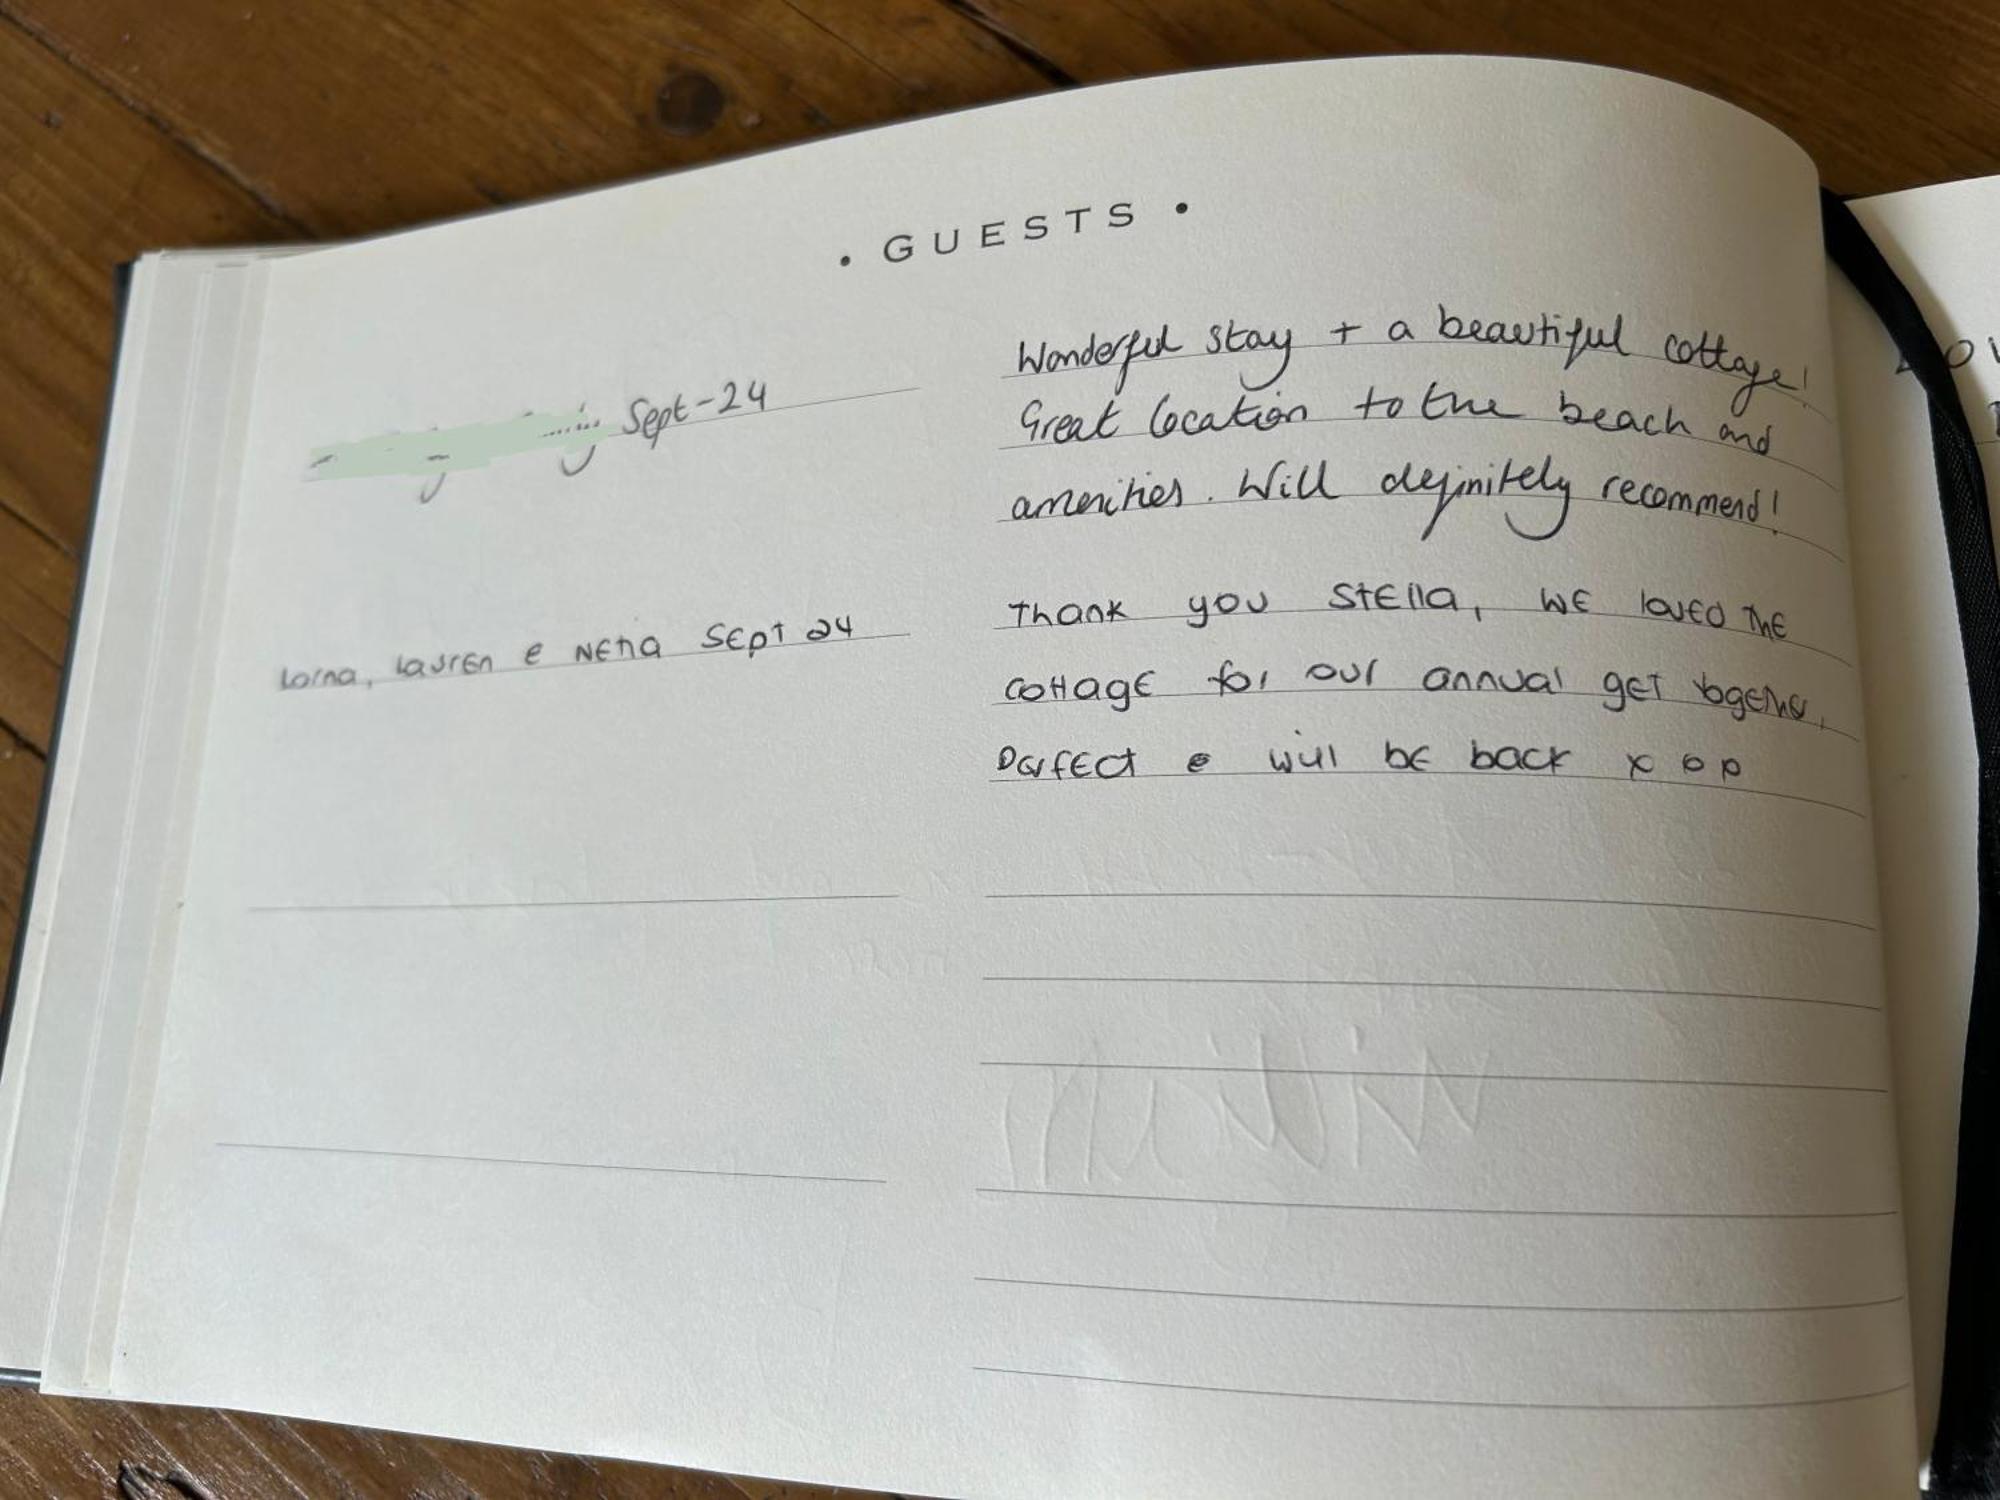 • GUESTS •
Sept-24
Wonderful stay + a beautiful cottage!
Great location to the beach and
amenities. Will definitely recommend!
Lorna, Lauren e Nena Sept 24
Thank you Stella, we loved the
cottage for our annual get together.
Perfect e will be back x o o